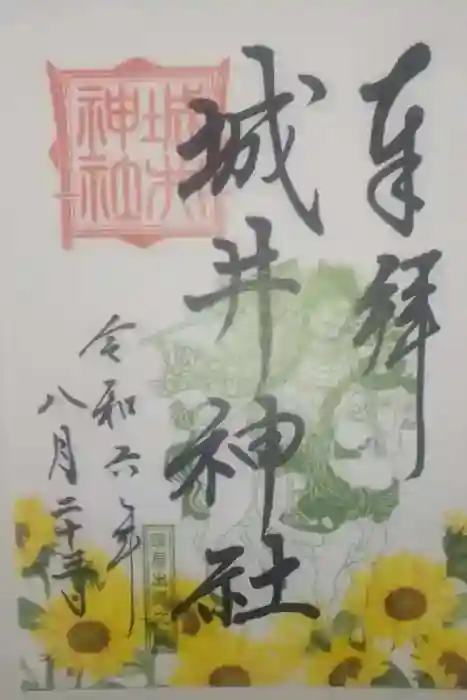 奉拝
城井神社
城井
神社
令和六年
八月二十日